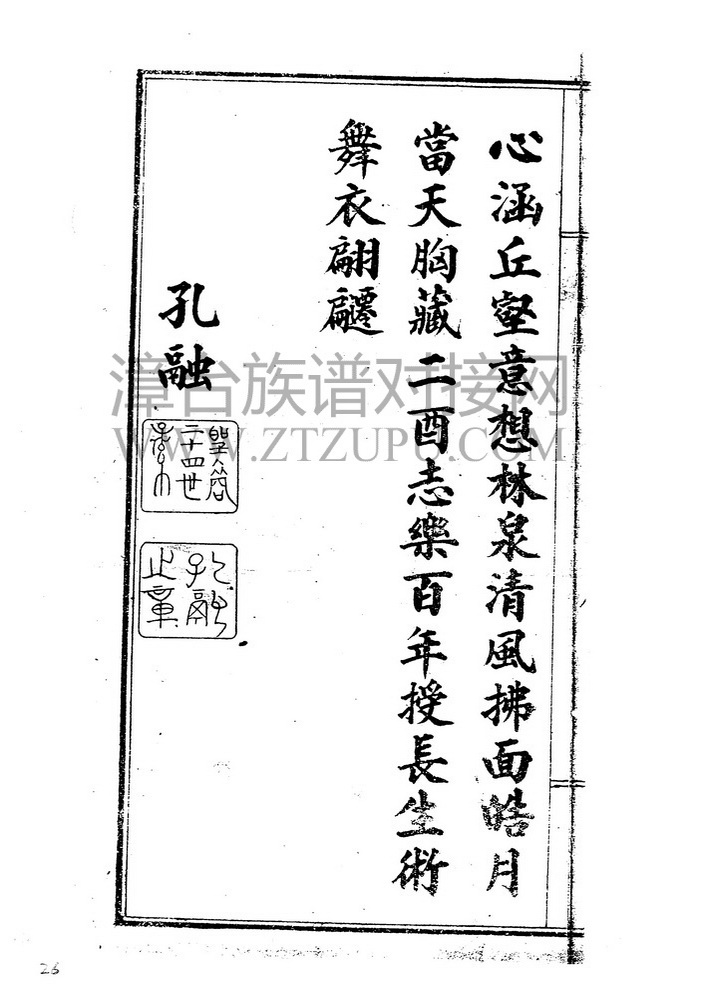 心涵丘壑意想林泉清風拂面皓月
當天胸藏二酉志樂百年授長生術
舞衣翩䙴
孔融
二十四世
孔融之章
漳台族谱对接网
WWW.ZTZUPU.COM
26